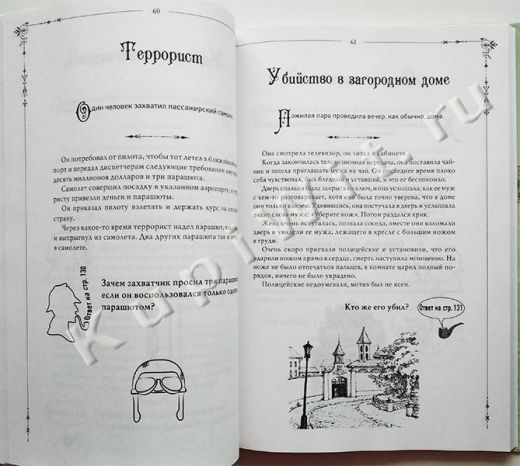 60
Террорист
Один человек захватил пассажирский самолет.
Он потребовал от пилота, чтобы тот летел в ближайший
порт и передал диспетчерам следующие требования:
десять миллионов долларов и три парашюта.
Самолет совершил посадку в указанном аэропорту,
ристу привезли деньги и парашюты.
Он приказал пилоту взлетать и держать курс на
страну.
Через какое-то время террорист надел парашют,
и выпрыгнул из самолета. Два других парашюта
в самолете.
Ответ на стр. 130
Зачем захватчик просил три парашюта,
если он воспользовался только одним
парашютом?
61
Убийство в загородном доме
Пожилая пара проводила вечер, как обычно, дома.
Она смотрела телевизор, он читал в кабинете.
Когда закончилась телевизионная передача, она поставила чай-
ник и пошла приглашать мужа на чай. Последнее время он плохо
себя чувствовал, был бледный, уставший, и это ее беспокоило.
Дверь
с кем-то говорит, хотя она была точно уверена, что в доме
они
зкие слова: «Уберите нож». Потом раздался крик.
Женщина, испугавшись, позвала соседа, вместе они взломали
двери и увидели ее мужа, лежащего в кресле с большим ножом
в груди.
Очень скоро приехали полицейские и установили, что его
ударили ножом прямо в сердце, смерть наступила мгновенно. На
ноже не было отпечатков пальцев, в комнате царил полный поря-
док, ничего не было украдено.
Полицейские недоумевали, мотив был не ясен.
Кто же его убил?
Ответ на стр. 131
KupiWit.ru